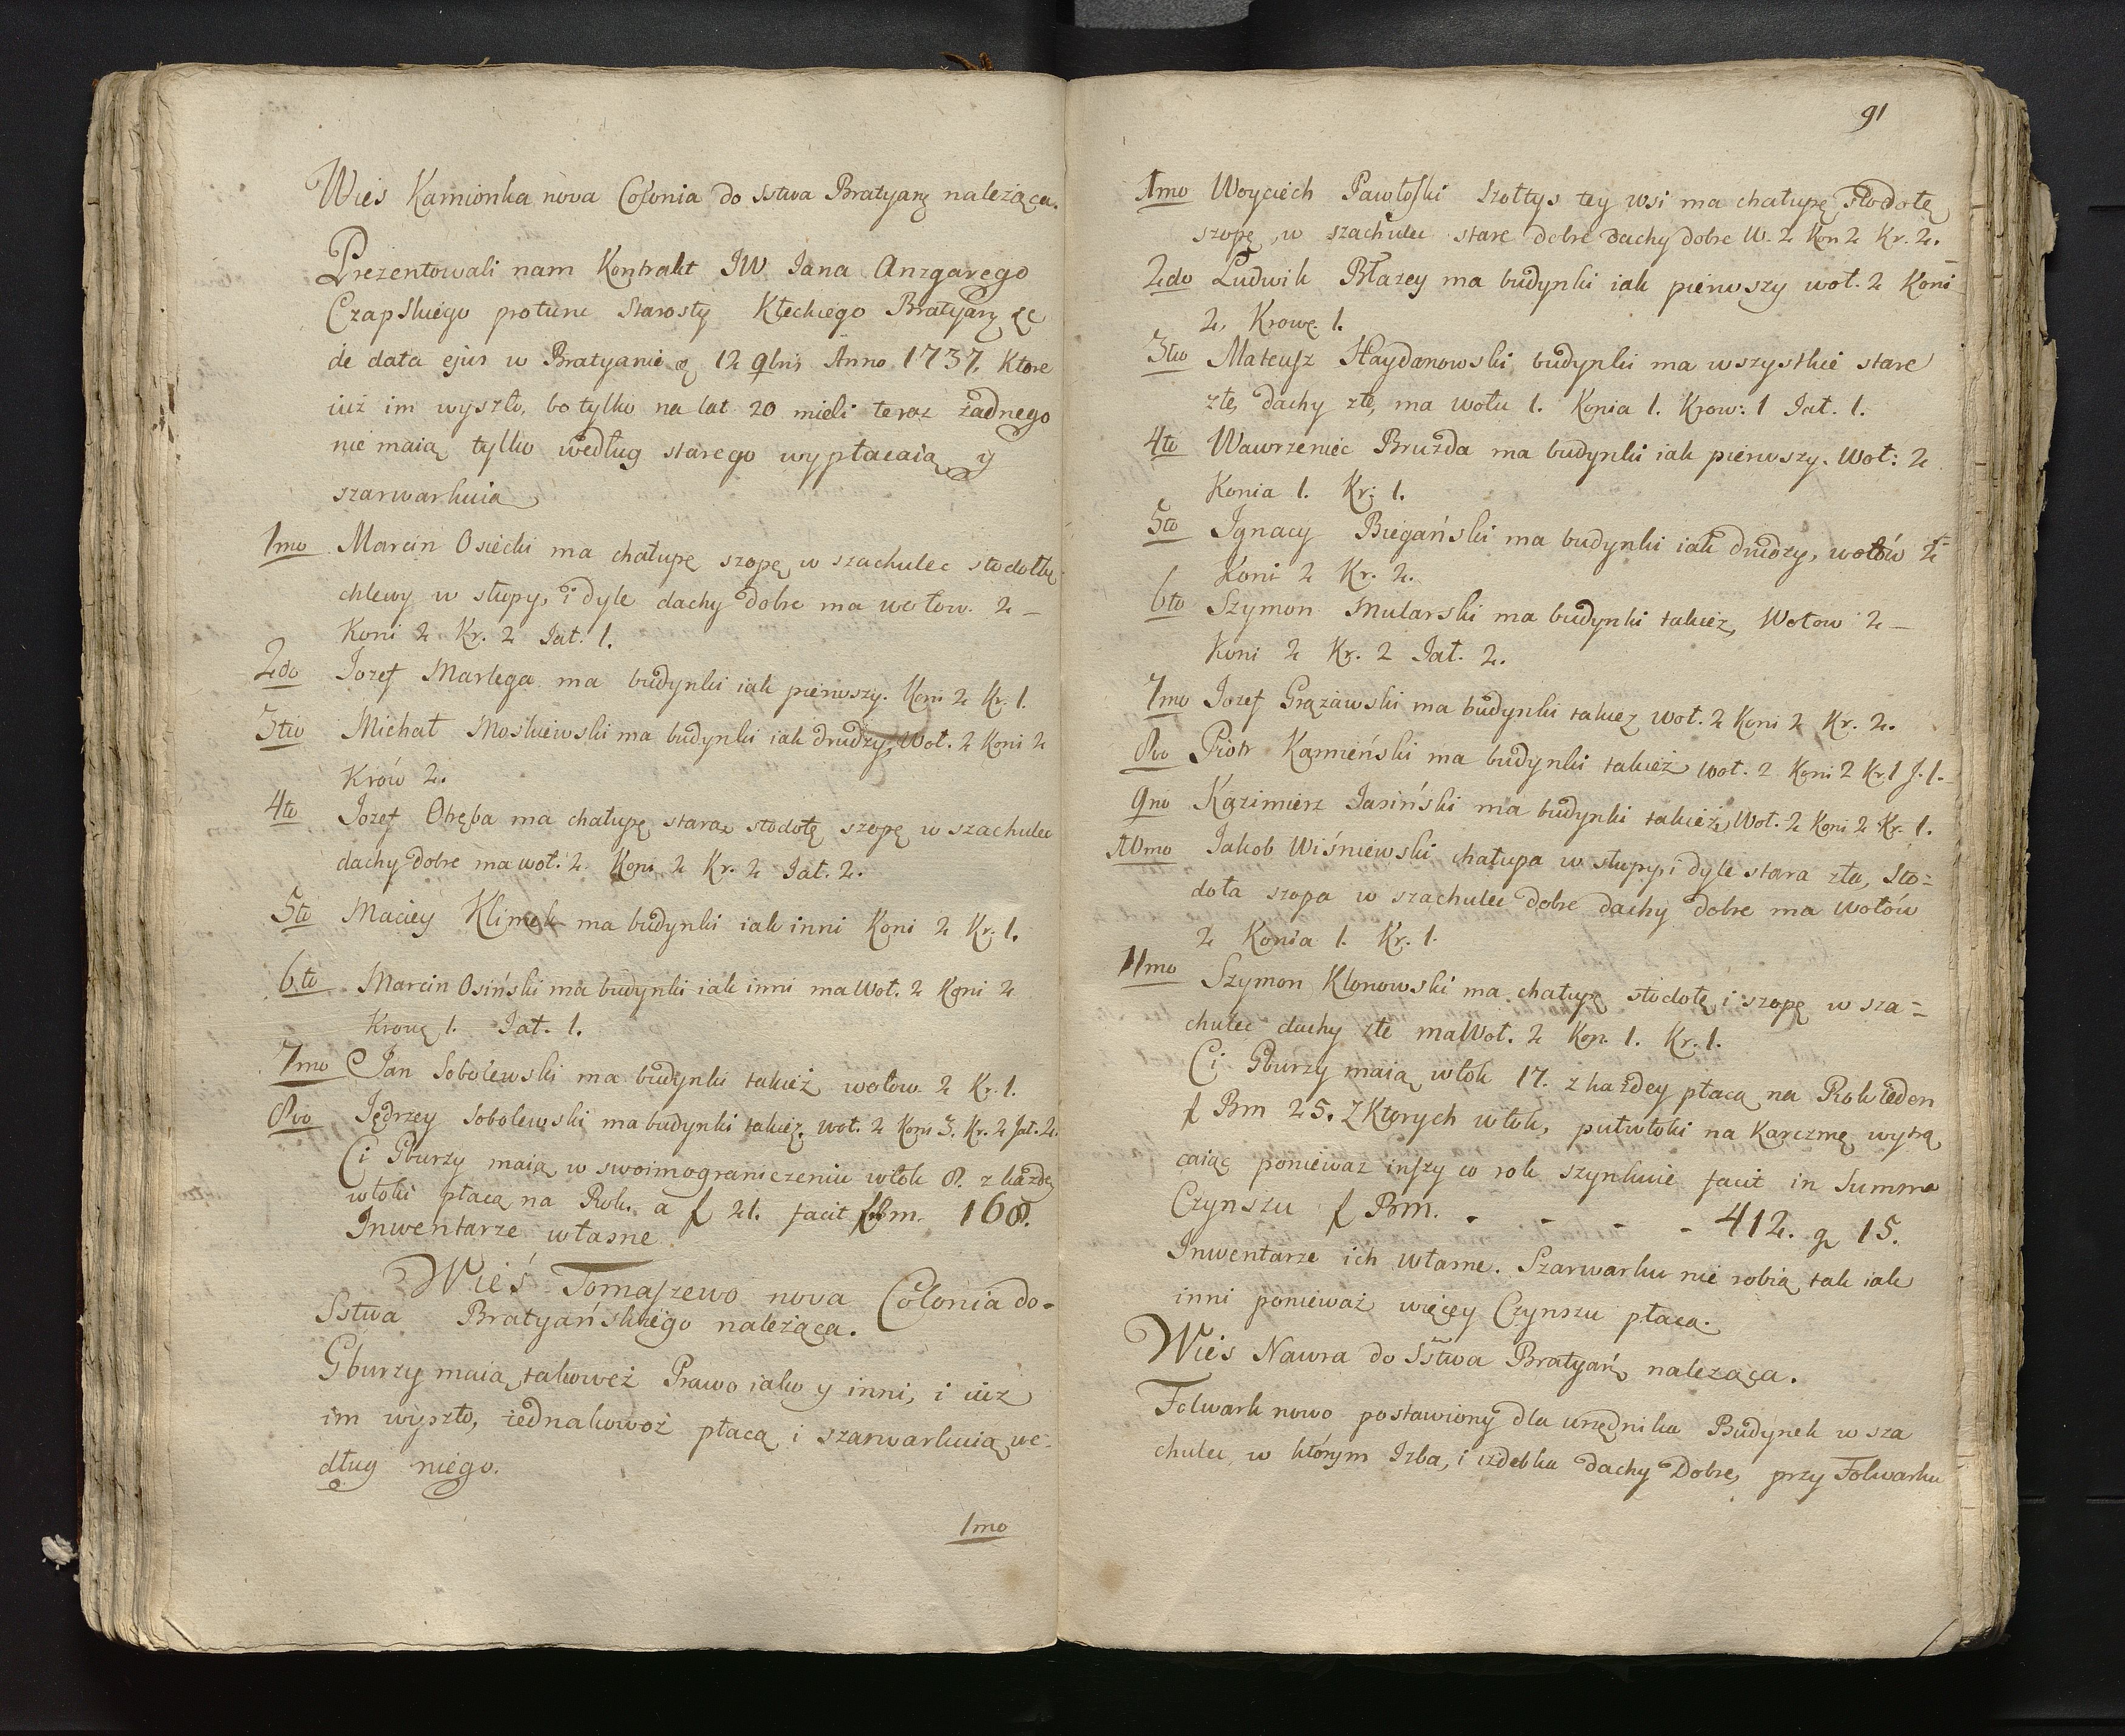 Wies Kamionka nova Colonia do Sstwa Bratyanę nalezącą.
Prezentowali nam Kontrakt JW Jana Anzgarego
Czapskiego protunc Starosty Kłeckiego Bratyanę ẹc
de data ejus w Bratyanie 12 9bris Anno 1737. Ktore
iuż im wyszło, bo tylko na lat 20 mieli teraz żadnego
nie maią tylko według starego wypłacaią y
szarwarkuią
1mo Marcin Osiecki ma chałupę szopę w szachulec stodołę
chlewy w słupy, i dyle dachy dobre ma wołow. 2 –
Koni 2 Kr. 2 Jał. 1.
2do Jozef Marlega ma budynki iak pierwszy. Koni 2 Kr. 1.
3tio Michał Moskiewski ma budynki iak drudzy, Woł. 2 Koni 2
Krów 2.
4to Jozef Otręba ma chałupę starą stodołę szopę w szachulec
dachy dobre ma woł. 2 Koni 2 Kr. 2 Jał. 2.
5to Maciey Klimek ma budynki iak inni Koni 2 Kr. 1.
6to Marcin Osiński ma budynki iak inni ma Woł. 2 Koni 2
Krowę 1. Jał. 1.
7mo Jan Sobolewski ma budynki takież wołow 2 Kr. 1.
8vo Jędrzey Sobolewski ma budynki takież. woł. 2 Koni 3. Kr. 2 Jał. 2.
Ci Gburzy maią w swoim ograniczeniu włok 8. z każdey
włoki płacą na Rok. a f 21. facit f bm. 168.
Inwentarze własne
Wieś Tomaszewo nova Colonia do-
Sstwa Bratyańskiego należąca.
Gburzy maią takoweż Prawo iako y inni, i iuż
im wyszło, iednakowoż płacą i szarwarkuią we-
dług niego.
1mo
91
1mo Woyciech Pawłoski Szołtys tey wsi ma chałupę stodołę
szopę, w szachulec stare dobre dachy dobre W. 2 Kon 2 Kr. 2.
2do Ludwik Błazey ma budynki iak pierwszy woł. 2 Koni
2, Krowę. 1.
3tio Mateusz Haydanowski budynki ma wszystkie stare
złe, dachy złe, ma wołu 1. Konia 1. Krow: 1 Jał. 1.
4to Wawrzeniec Bruzda ma budynki iak pierwszy. Woł: 2
Konia 1. Kr: 1.
5to Jgnacy Biegański ma budynki iak drudzy, wołów 2
Koni 2 Kr. 2.
6to Szymon Mularski ma budynki takież, Wołow 2 –
Koni 2 Kr. 2 Jał. 2.
7mo Jozef Grązawski ma budynki takież woł. 2 Koni 2 Kr. 2.
8vo Piotr Kamieński ma budynki takież woł. 2 Koni 2 Kr. 1 J. 1.
9no Kazimierz Jasiński ma budynki takież, Woł. 2 Koni 2 Kr. 1.
10mo Jakob Wiśniewski chałupa w słupy i dyle stara zła, Sto=
doła szopa w szachulec dobre dachy dobre ma wołów
2 Konia 1. Kr. 1.
11mo Szymon Klonowski ma chałupę stodołę i szopę w sza=
chulec dachy złe ma Woł. 2 Kon. 1. Kr. 1.
Ci Gburzy maią włok 17. z każdey płacą na Rok ieden
f Bm 25. Z Ktorych włok, pułwłoki na Karczmę wytrą
caiąc poniewaz inszy co rok szynkuie facit in Summa
Czynszu f Bm. - - - - 412. g 15.
Inwentarze ich własne. Szarwarku nie robią tak iak
inni ponieważ więcey Czynszu płacą.
Wieś Nawra do Sstwa Bratyań należąca.
Folwark nowo postawiony dla urzędnika Budynek w sza
chulec, w którym Izba, i izdebka dachy Dobre, przy Folwarku